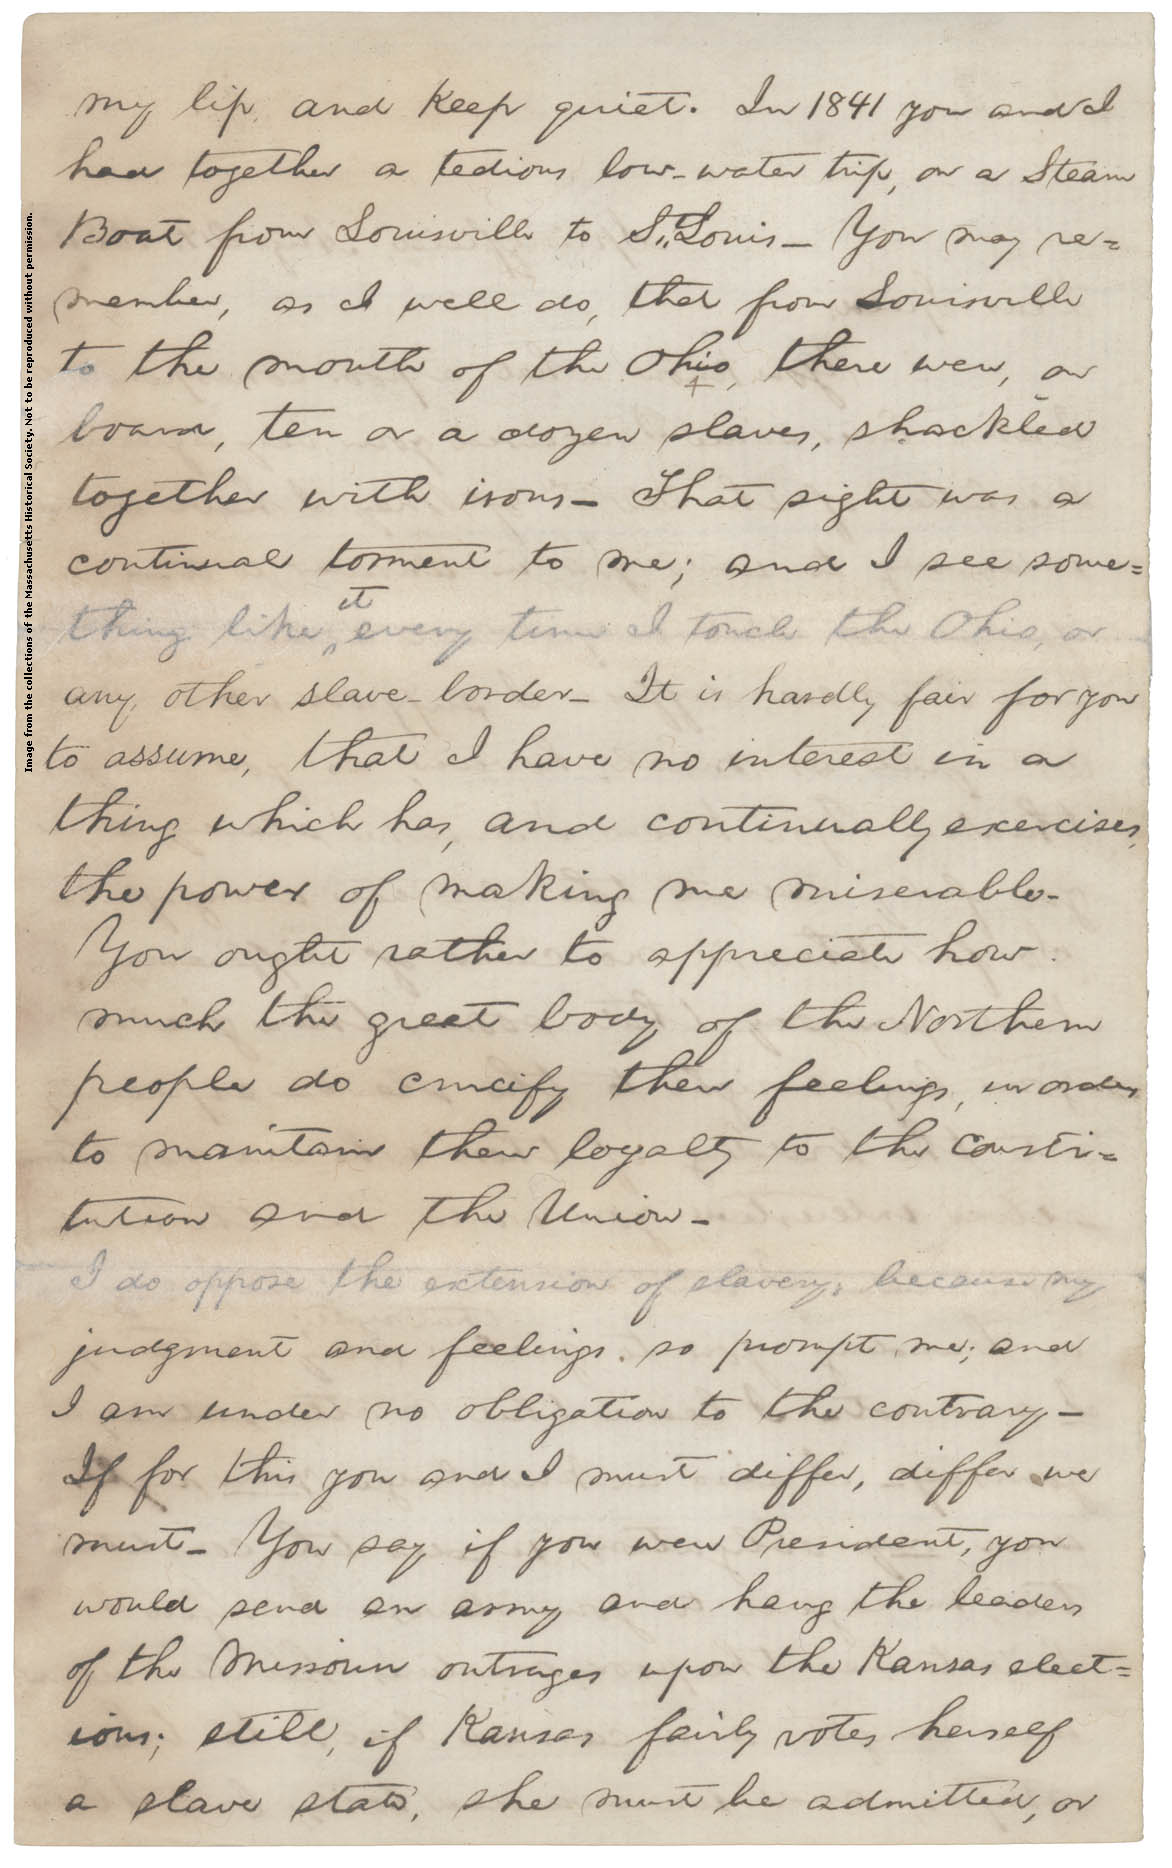 my lip, and keep quiet. In 1841 you and I
had together a tedious low-water trip, on a Steam
Boat from Louisville to St. Louis— You may re=
member, as I well do, that from Louisville
to the mouth of the Ohio, there were, on
board, ten or a dozen slaves, shackled
together with irons— That sight was a
continual torment to me; and I see some=
it
thing like ‸ every time I touch the Ohio, or
any other slave-border— It is hardly fair for you
to assume, that I have no interest in a
thing which has, and continually exercises,
the power of making me miserable-
You ought rather to appreciate how
much the great body of the Northern
people do crucify their feelings, in order
to maintain their loyalty to the Consti=
tution and the Union—
I do oppose the extension of slavery, because my
judgment and feelings so prompt me; and
I am under no obligation to the contrary—
If for this you and I must differ, differ we
must— You say if you were President, you
would send an army and hang the leaders
of the Missouri outrages upon the Kansas elect=
ions; still, if Kansas fairly votes herself
a slave state, she must be admitted, or
Image from the collections of the Massachusetts Historical Society. Not to be reproduced without permission.